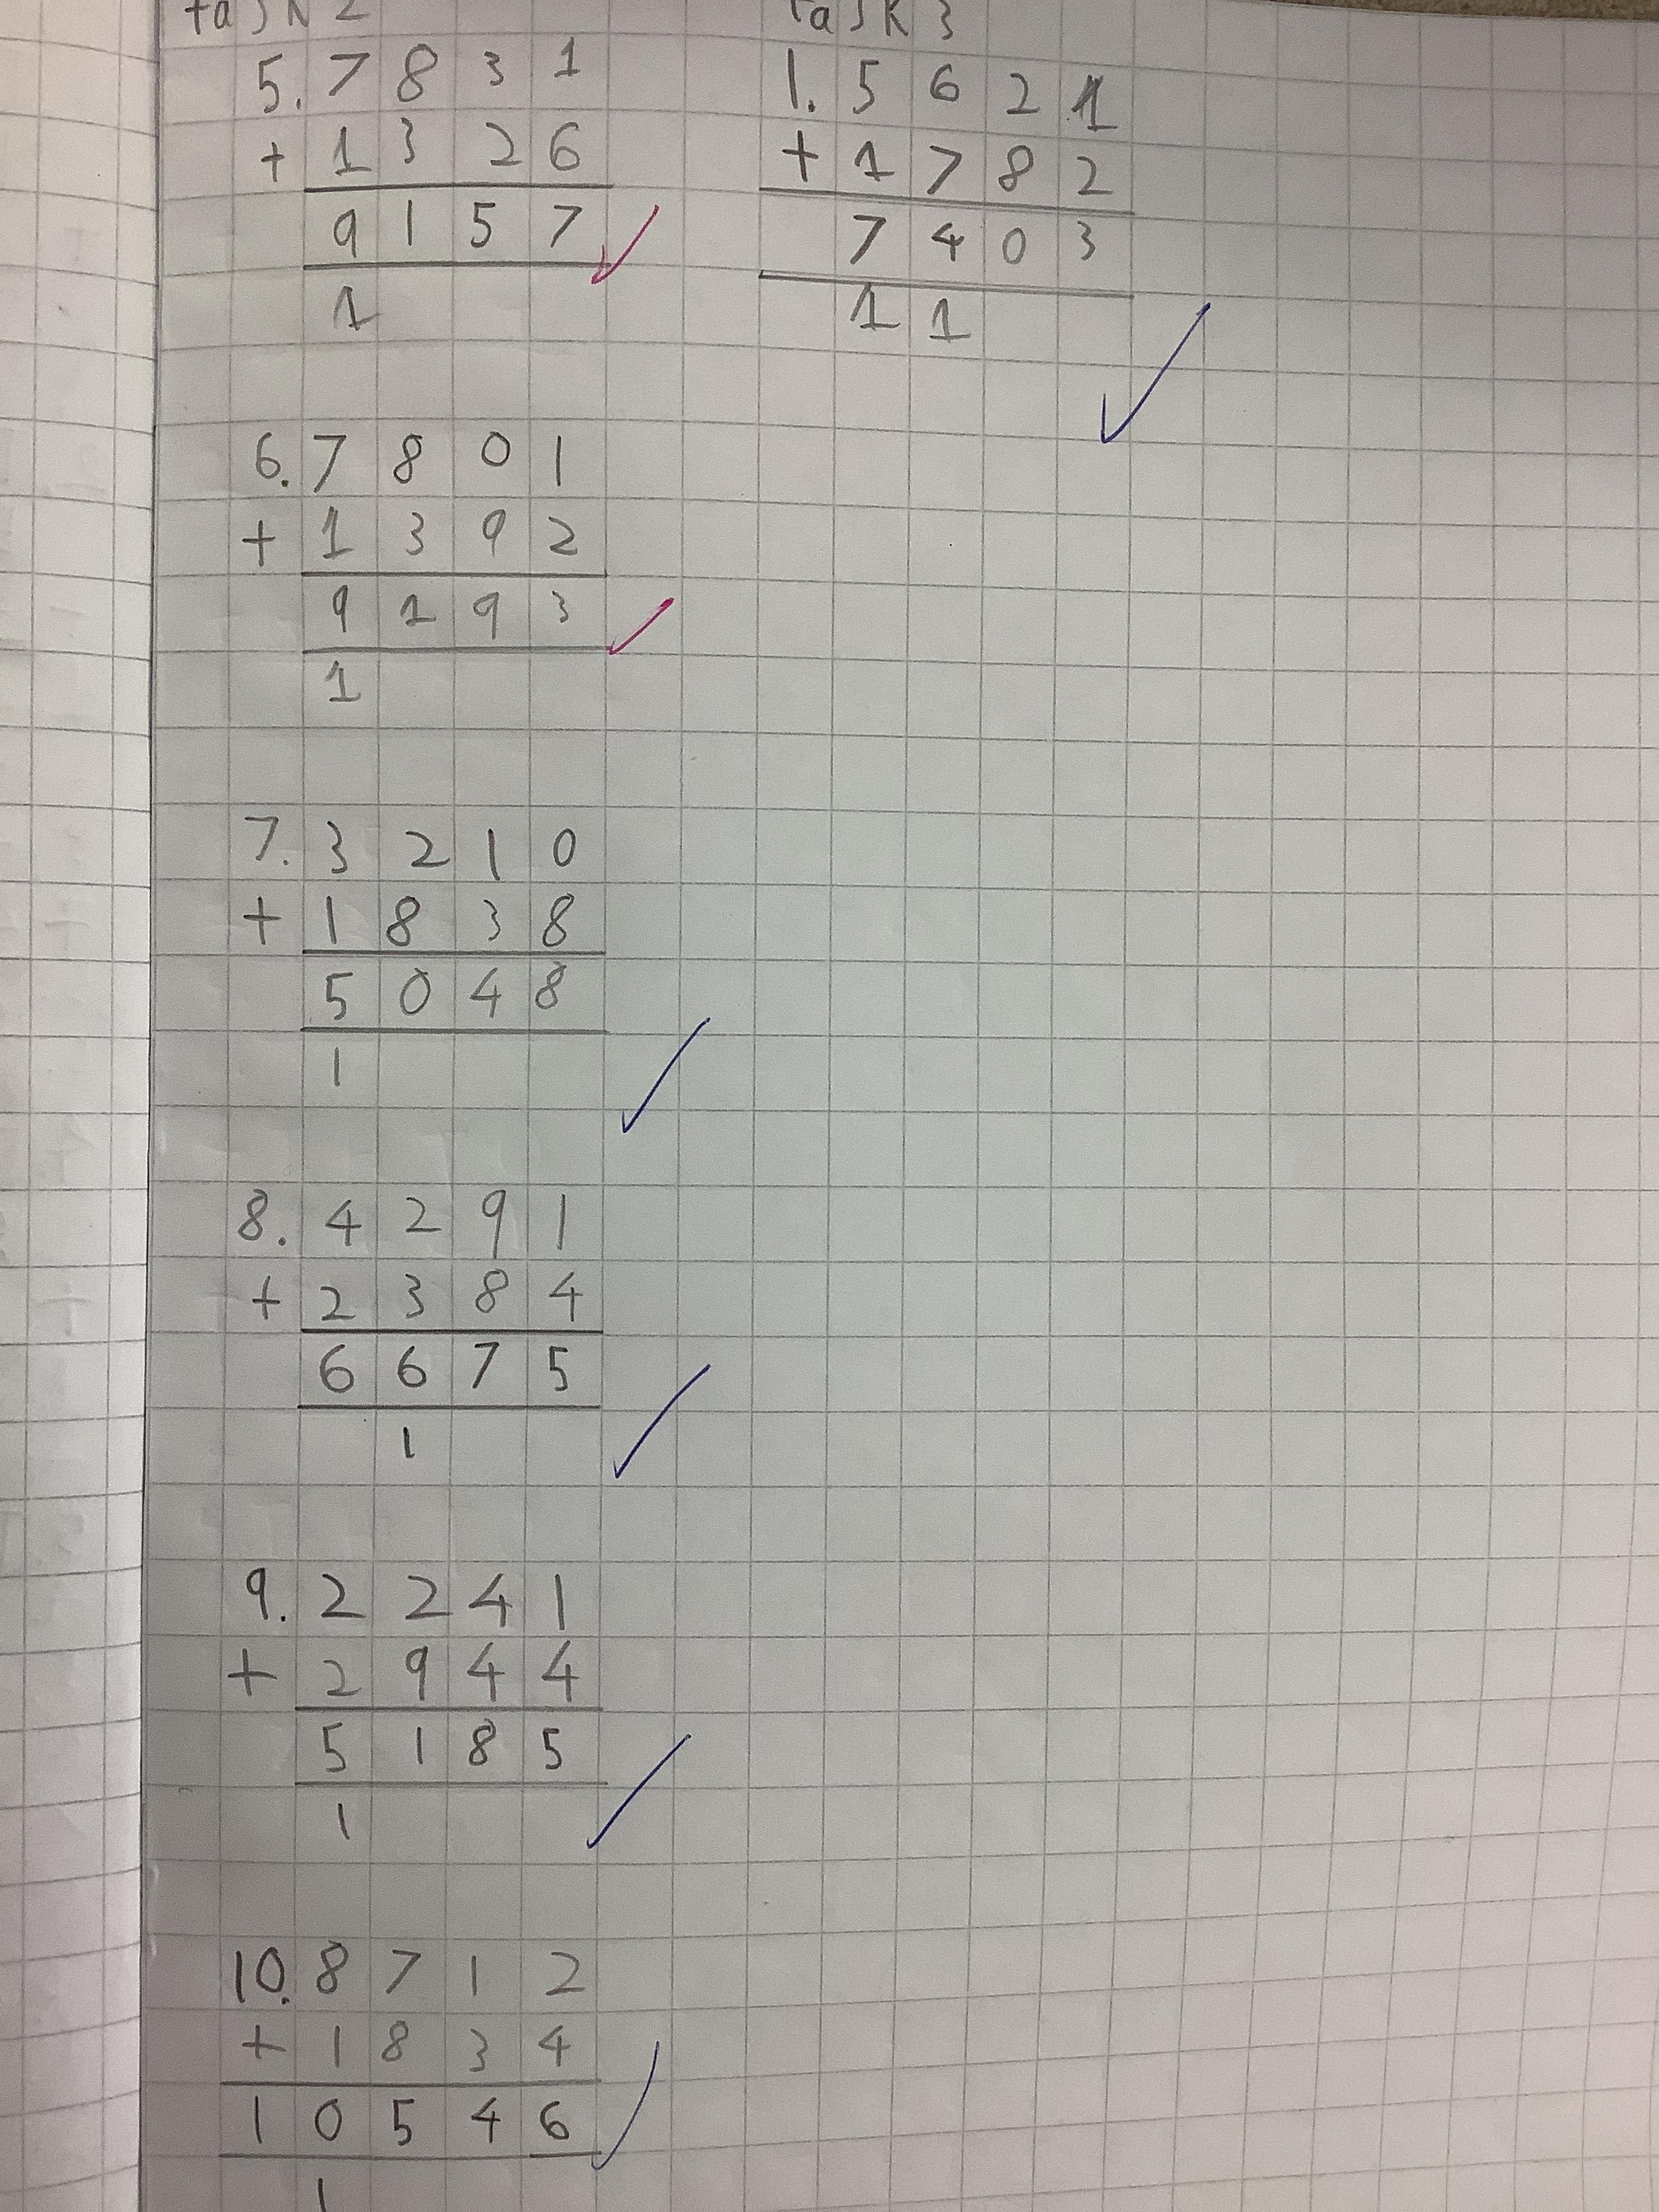 task 2
5. 7 8 3 1
+ 1 3 2 6
9 1 5 7
1
6. 7 8 0 1
+ 1 3 9 2
9 1 9 3
1
7. 3 2 1 0
+ 1 8 3 8
5 0 4 8
1
8. 4 2 9 1
+ 2 3 8 4
6 6 7 5
1
9. 2 2 4 1
+ 2 9 4 4
5 1 8 5
1
10. 8 7 1 2
+ 1 8 3 4
1 0 5 4 6
1
Task 3
1. 5 6 2 1
+ 1 7 8 2
7 4 0 3
1 1